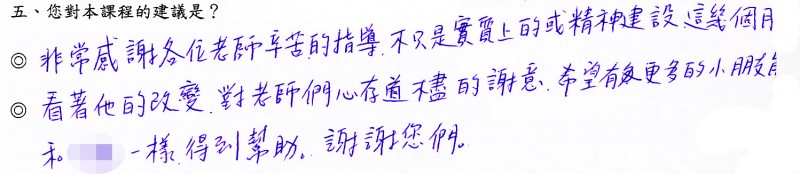 五、您對本課程的建議是？
◎ 非常感謝各位老師辛苦的指導，不只是實質上的或精神建設，這幾個月
◎ 看著他的改變，對老師們心存道不盡的謝意，希望有更多的小朋友能
和 一樣，得到幫助。謝謝您們。